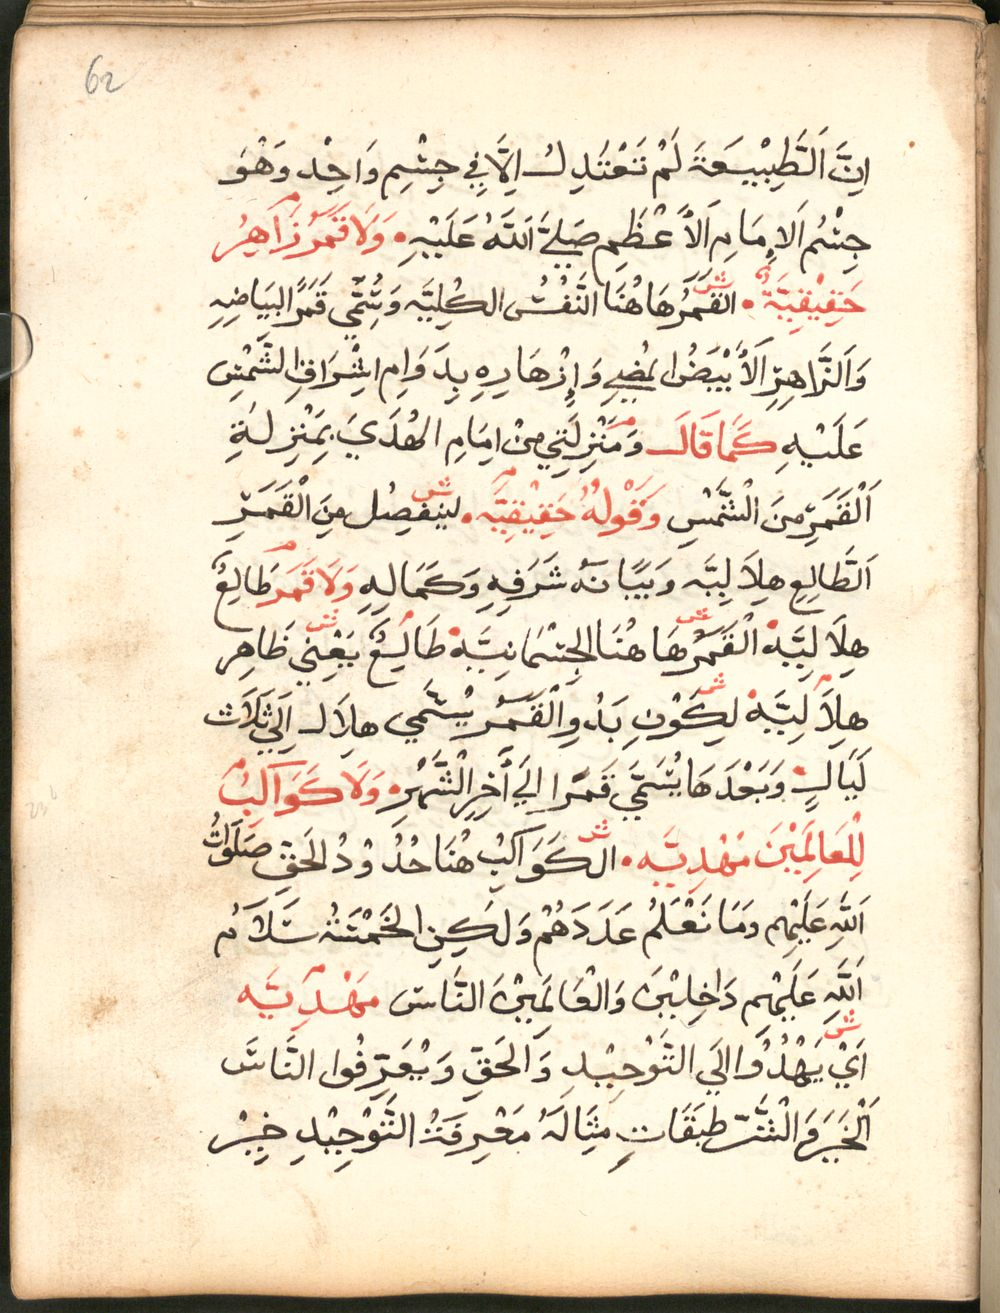 62
اِنَّ اَلطَّبِيْعَةَ لَمْ تَعْتَدِلُ اِلاَّ فِي جِسْمٍ وَاحِدٍ وَهُوَ
جِسْمُ الاِمَامِ اَلاَعْظَمِ صَلَّىَ اَللهُ عَلَيْهِ وَلاَ قَمَرٌ زَاهِرُ
حَقِيْقِيَّةٌ القَمَرُ هَاهُنَا النَّفْسُ الكُلِيَّه وَسُمِّي قَمَرًا لبَيَاضِهِ
وَاَلزَّاهِرِ اَلاَبْيَضُ المُضِي وَاِزْهَارِهِ بِدَوَامِ اشْرَاقِ الشَّمْسِ
عَلَيْهِ كَمَا قَالَ وَمَنْزِلَتِي مِنْ اِمَامِ الهُدَىَ بِمَنْزِلَةِ
اَلْقَمَرِ مِنَ الْشَّمْسِ وَقَوْلُهُ حَقِيْقِيَّه لينفَصِل مِنَ الْقَمَرِ
اَلطَّالِعِ هِلاَلِيَّه وَبَيَانه شَرَفِهِ وَكَمَالِهِ وَلاَ قَمَر طَالِعٌ
هِلاَلِيَّة الْقَمَرُ هَاهُنَا الجِسْمَانِيَّة طَالِعٌ يَعْنِي ظَاهِر
هِلاَلِيَّة لِكَوْنِ بَدْوِ الْقَمَرِ يُسَمَّي هِلاَل اِلَي ثَلاَث
لَيَالٍ وَبَعْدَهَا يُسَمَّي قَمَرًا الَي أَخِرِ الْشَّهْرِ وَلاَ كَوَاكِبُ
لِلْعَالَمِيْنَ مَهْدِيَّه الكَوَاكِبْ هُنَا حُدُوْدُ الحَقِّ صَلَوَاتُ
اَللهِ عَلَيْهِم وَمَا نَعْلَمُ عَدَدَهُمْ وَلَكِنِ الخَمْسَة سَلاَمُ
اَللهِ عَلَيْهِم دَاخِلِيْنَ وَالْعَالَمِيْنَ النَّاسَ مَهْدِيَّه
اَيْ يَهْدُوْا اِلَي التَّوْحِيْدِ وَالحَقِّ وَيُعَرِّفُوا النَّاسَ
اَلْخَيْرَ وَالْشَّرَّ طَبَقَاتٍ مِثَالَهُ مَعْرِفَةُ التَّوْحِيْدِ خَيْر